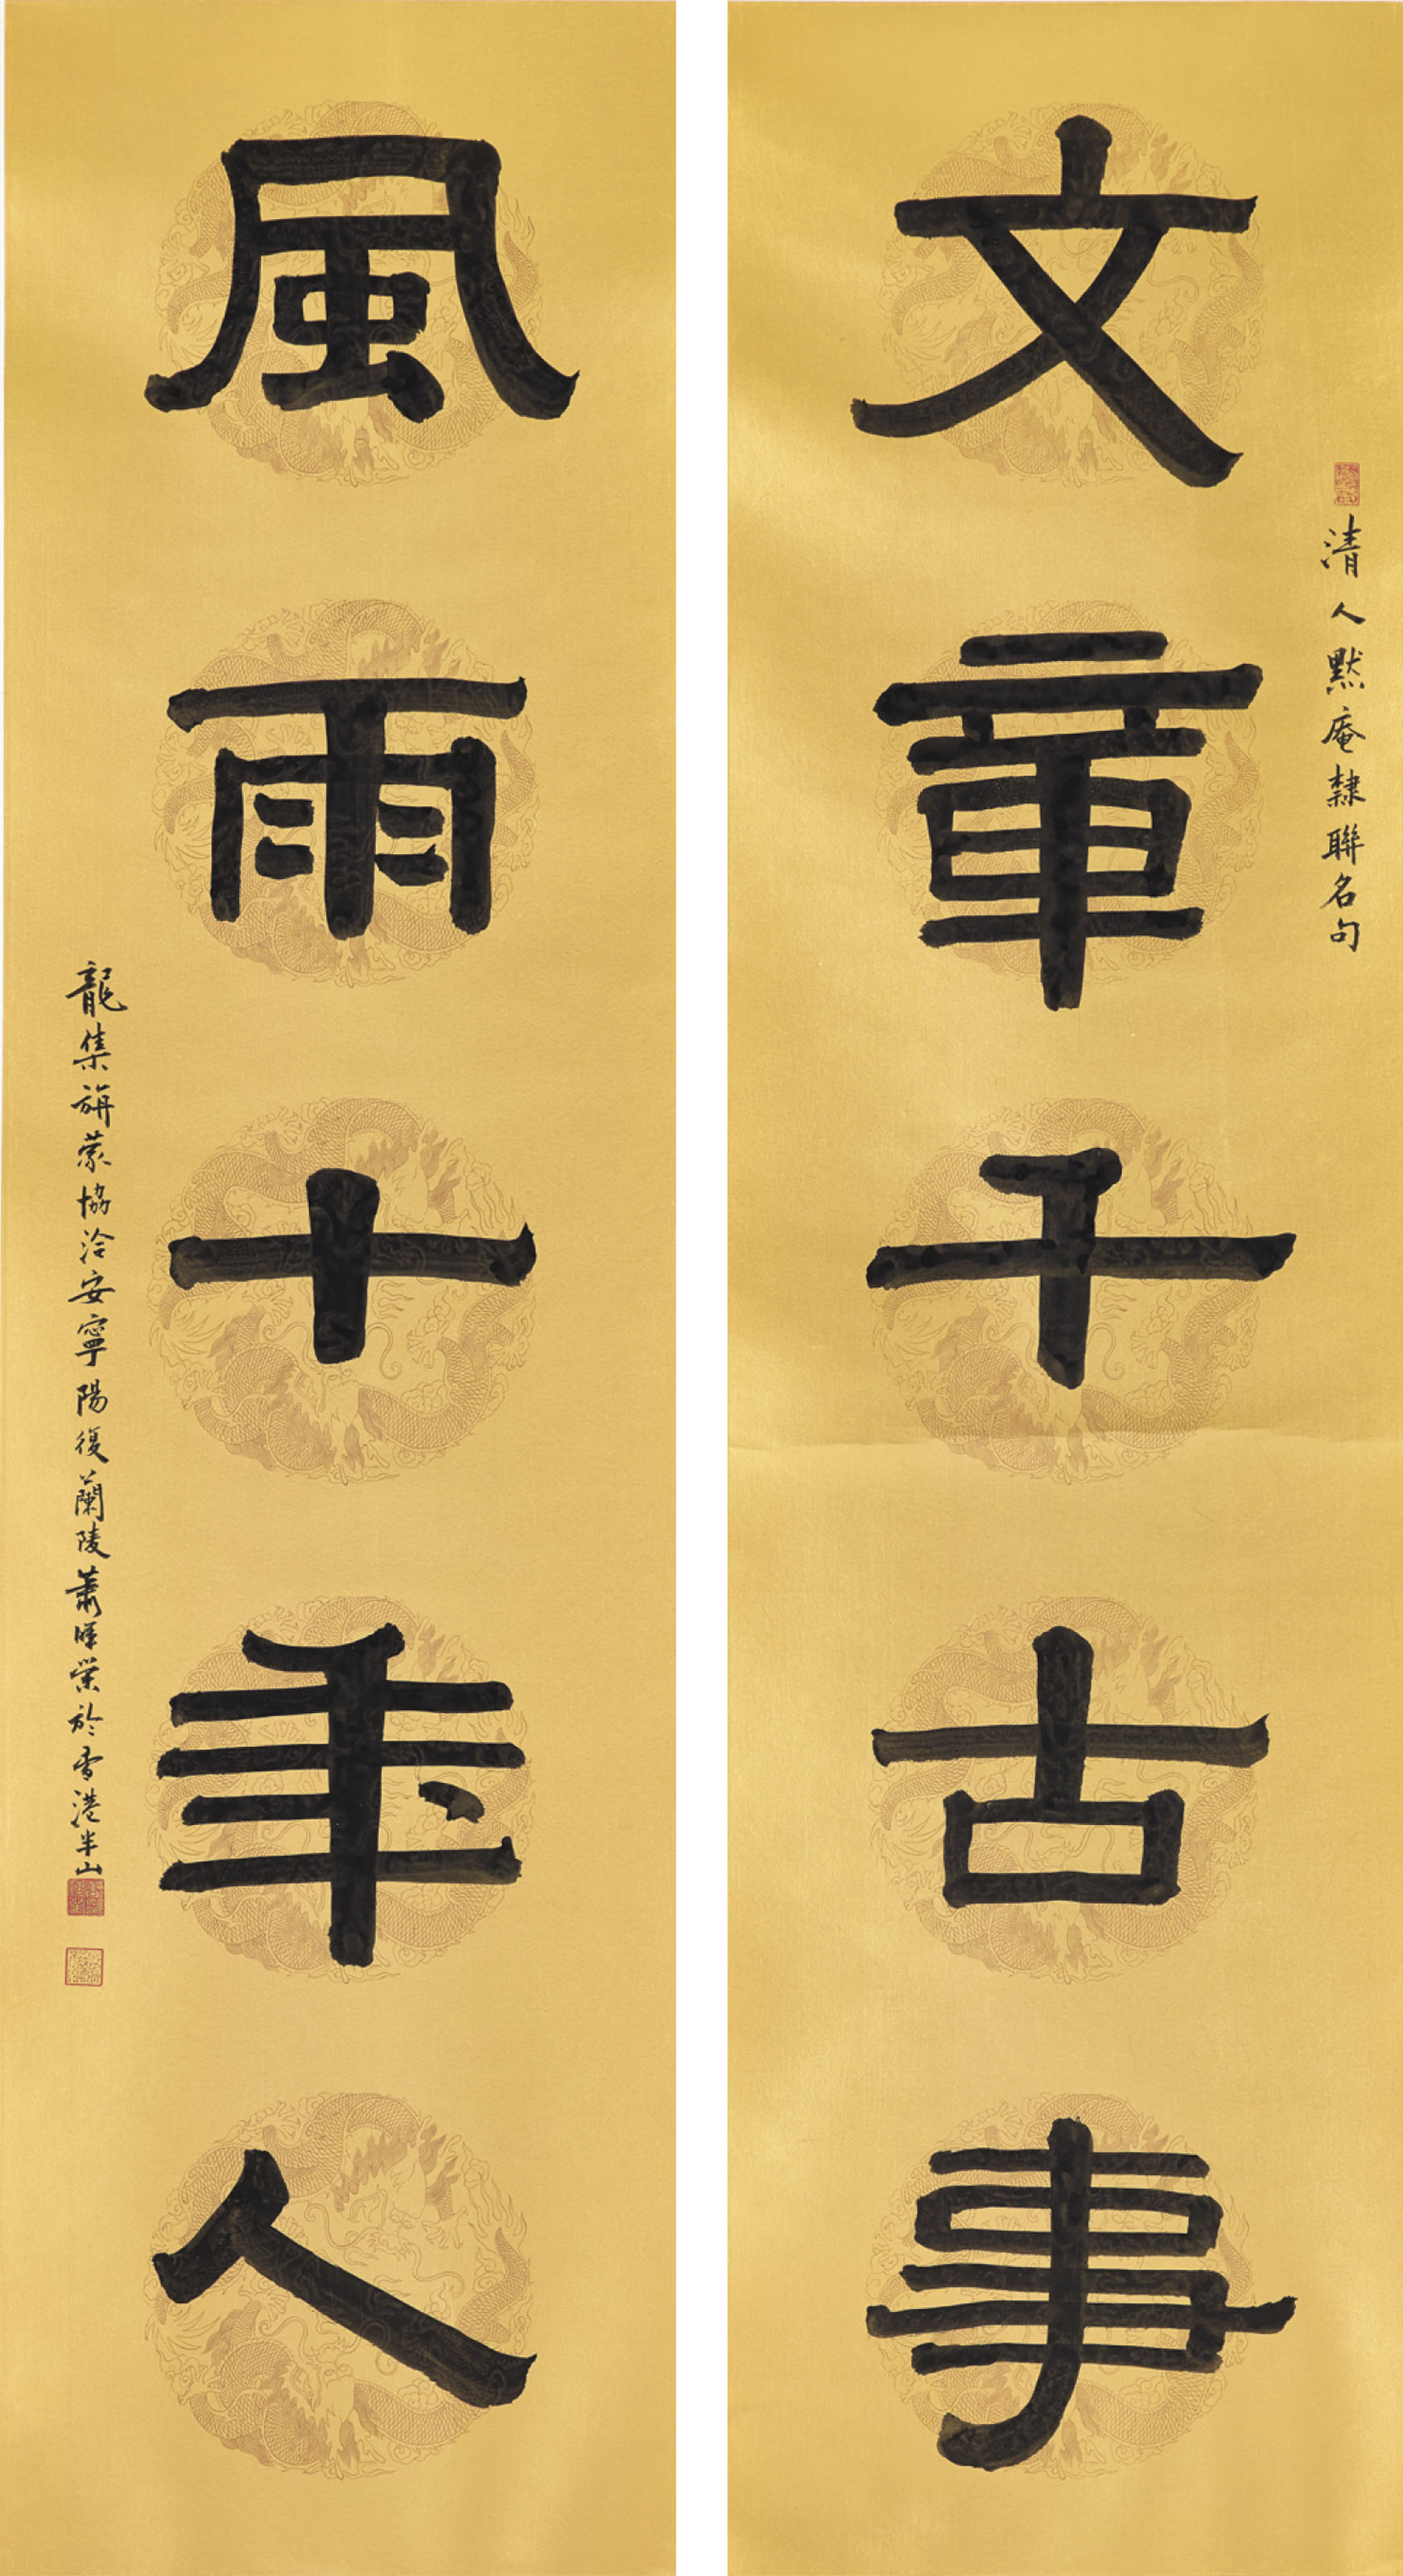 清人默庵隸聯名句
文章千古事
風雨十年人
龍集旃蒙協洽安寧陽復蘭陵蕭暉榮於香港半山